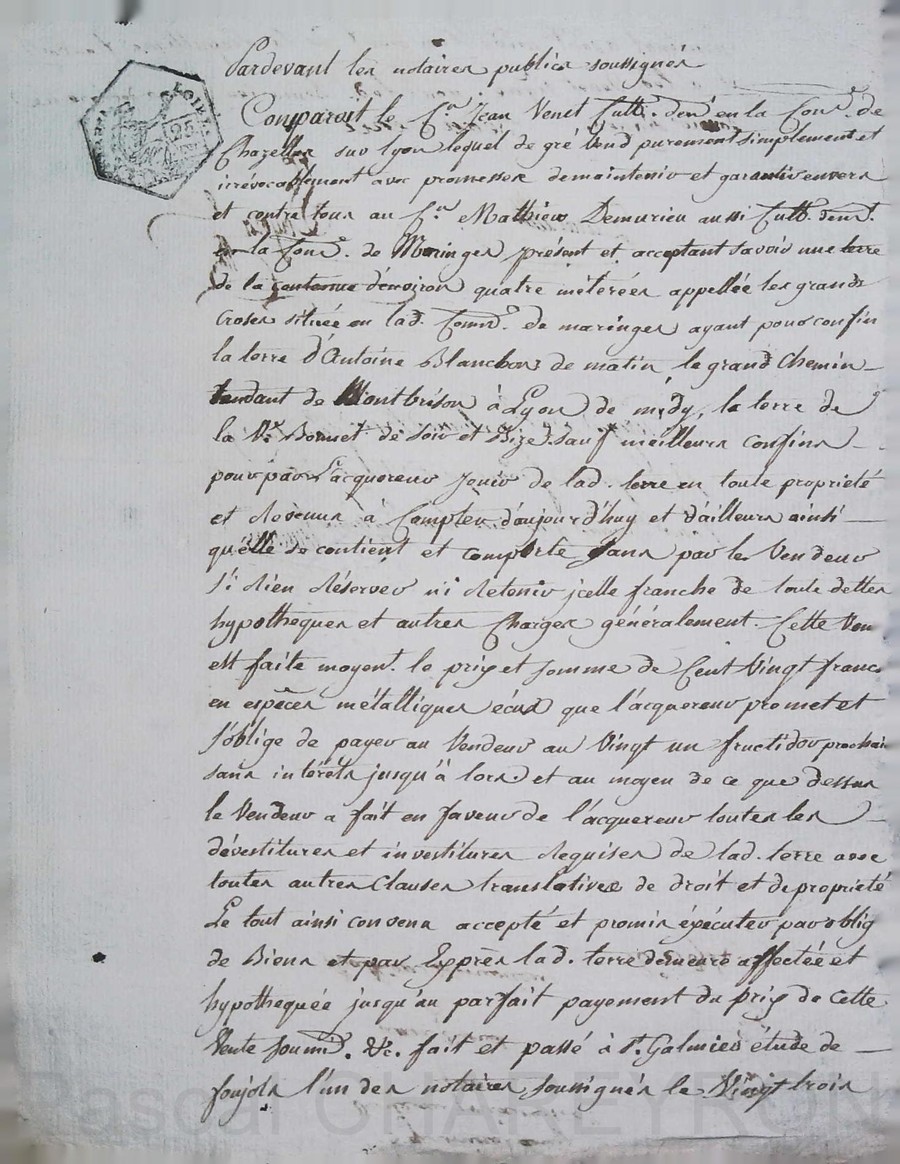 Pardevant les notaires publics soussignés
Comparoit le C.en Jean Venet Cult. dem.t en la Com.e de
Chazelles sur Lyon lequel de gré Vend purement simplement et
irrévocablement avec promesse de maintenir et garantir envers
et contre tous au C.en Mathieu Demurieu aussi Cult. dem.t
en la Com.e de Maringes, présent et acceptant savoir une terre
de la contenue d'environ quatre méterées appellée les grands
Croses située en lad. Comm.e de maringes ayant pour confin
la terre d'Antoine Blanchon de matin, le grand Chemin
tendant de Montbrison à Lyon de midy, la terre de
la V.e Bonnet de soir et Bize. sauf meilleurs confins
pour par L'acquereur jouir de lad. terre en toute propriété
et revenus à Compter d'aujourd'huy et d'ailleurs ainsi
qu'elle se contient et comporte sans par le Vendeur
s'i rien réserver ni retenir icelle franche de toute dettes
hypotheques et autres Charges généralement. Cette Ven
est faite moyen.t le prix et somme de Cent Vingt francs
en espèces métalliques écus que l'acquereur promet et
s'oblige de payer au Vendeur au Vingt un fructidor prochain
sans intérêts jusqu'à lors. et au moyen de ce que dessus
le Vendeur a fait en faveur de l'acquereur toutes les
dévestitures et investitures requises de lad. terre avec
toutes autres Clauses translatives de droit et de propriété
Le tout ainsi convenu accepté et promis éxécuter par oblig
de Biens et par Exprès lad. terre demeure affectée et
hypothequée jusqu'au parfait payement du prix de cette
Vente soumis. &c. fait et passé à S.t Galmier étude de
foujols l'un des notaires soussignés le Vingt trois
Pascal CHAREYRON